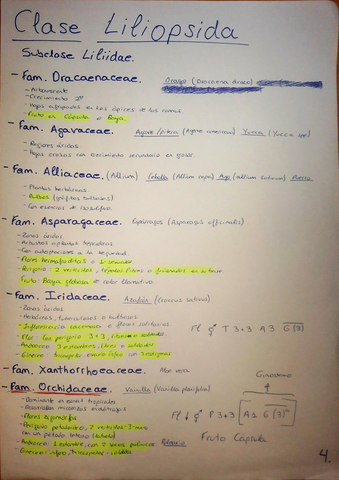 Clase Liliopsida
Subclase Liliidae.
- Fam. Dracaenaceae. Drago (Dracaena draco)
- Arborescente
- Crecimiento 2º
- Hojas agrupadas en los ápices de las ramas.
- Fruto es Cápsula o Baya
- Fam. Agavaceae. Agave/Pitera (Agave americana) Yucca (Yucca spp)
- Regiones áridas
- Hojas crasas con crecimiento secundario en grosor.
- Fam. Alliaceae. (Allium) Cebolla (Allium cepa) Ajo (Allium sativum) Puerro
- Plantas herbáceas
- Bulbos
- Con esencias de
- Fam. Asparagaceae. Espárragos (Asparagus officinalis)
- Zonas áridas
- Arbustos o plantas trepadoras
- Con adaptaciones a la sequedad
- Flores hermafroditas o unisexuales
- Perigonio: 2 verticilos, tépalos libres o fusionados en su base
- Fruto: Baya globosa de color llamativo
- Fam. Iridaceae. Azafrán (Crocus sativus)
- Zonas áridas
- Herbáceas, tuberculosas o bulbosas
- Inflorescencia racemosa o flores solitarias
- Flor: Con perigonio 3+3, libres o soldados
- Androceo: 3 estambres, libres o soldados
- Gineceo: tricarpelar, ovario ínfero con 3 estigmas
Fl ⚥ T 3+3 A 3 G (3)
- Fam. Xanthorrhoeaceae. Aloe vera
- Fam. Orchidaceae. Vainilla (Vanilla planifolia)
Ginostemo
- Dominante en zonas tropicales
- Desarrollan micorrizas endótrofas
- Flores zigomorfas
- Perigonio petaloideo, 2 verticilos 3 piezas
con un pétalo terceso (labelo)
- Androceo: 1 estambre con 2 sacos polínicos Polinio
- Gineceo: ínfero, tricarpelar soldado
Fl ↓ ⚥ P 3+3 [A1 G (3)]
Fruto Cápsula
4.